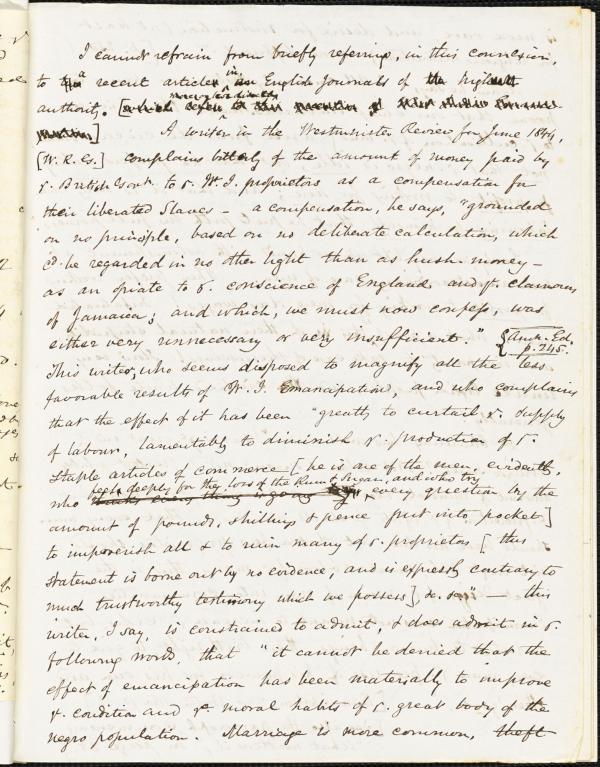 I cannot refrain from briefly referring, in this connexion,
to a recent article in English Journals of the highest
authority.
A writer in the Westminster Review for June 1844,
[W. R. Es.] complains bitterly of the amount of money paid by
ye. British Govt. to ye. W. I. proprietors as a compensation for
their liberated Slaves – a compensation, he says, "grounded
on no principle, based on no deliberate calculation, which
cd. be regarded in no other light than as hush-money –
as an opiate to ye. conscience of England and ye. clamours
of Jamaica; and which, we must now confess, was
either very unnecessary or very insufficient." {Amn. Ed.
p. 245.
This writer, who seems disposed to magnify all the less
favorable results of W. I. Emancipation, and who complains
that the effect of it has been "greatly to curtail ye. supply
of labour, lamentably to diminish ye. production of ye.
staple articles of commerce [he is one of the men, evidently,
feels deeply for the loss of the Rum & Sugar, and who try
who every question by the
amount of pounds, shillings & pence put into pocket]
to impoverish all & to ruin many of ye. proprietors [this
statement is borne out by no evidence, and is expressly contrary to
much trustworthy testimony which we possess] &c. &c" – this
writer, I say, is constrained to admit, & does admit in ye.
following words, that "it cannot be denied that the
effect of emancipation has been materially to improve
ye. condition and ye moral habits of ye. great body of the
negro population. Marriage is more common, theft